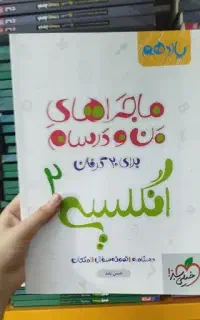 یازدهم
ماجراهای
من و درسام
برای ۲۰ گرفتن
انگلیسی ۲
خیلی سبز